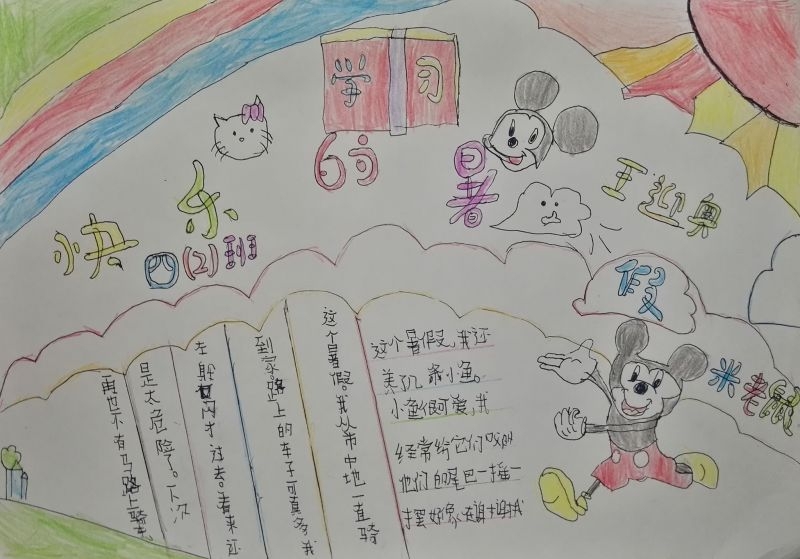 学习
快乐
的
暑
假
四(2)班
王迎奥
米老鼠
这个暑假。我从市中地一直骑
到家路上的车子可真多我
在 两才过去。看来还
是太危险了。下次
再也不有马路上骑车
这个暑假,我还
条小鱼。
小鱼很可爱,我
经常给它们
他们的尾巴一摇一
摆好像在谢谢我